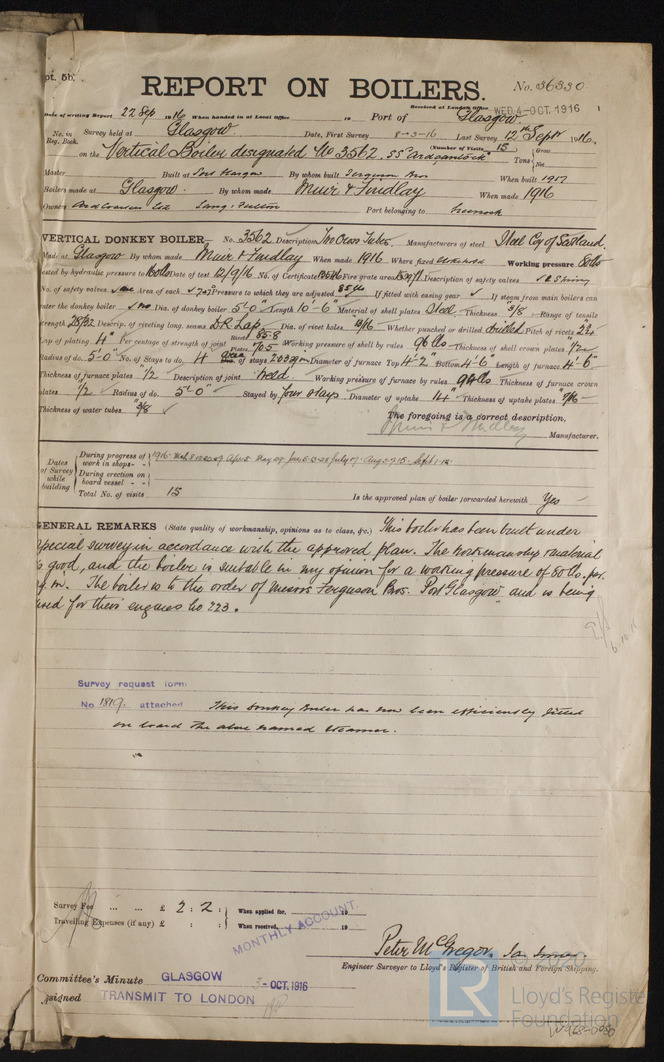 pt. 5b.
REPORT ON BOILERS.
No. 36330
Received at London Office WED. 4-OCT. 1916
Date of writing Report 22 Sep 1916 When handed in at Local Office 19 Port of Glasgow
No. in Reg. Book. Survey held at Glasgow Date, First Survey 8-3-16 Last Survey 12th Sept 1916
(Number of Visits 15) Gross Tons Net
on the Vertical Boiler designated No 3562. SS "Ardgantock"
Master Built at Port Glasgow By whom built Ferguson Bros When built 1917
Boilers made at Glasgow. By whom made Muir & Findlay When made 1916
Owners Port belonging to Greenock
VERTICAL DONKEY BOILER No. 3562 Description Two Cross Tubes. Manufacturers of steel Steel Coy of Scotland.
Made at Glasgow By whom made Muir & Findlay When made 1916 Where fixed Working pressure 80 lbs
ested by hydraulic pressure to 160 lbs Date of test 12/9/16 No. of Certificate Fire grate area Description of safety valves Spring
No. of safety valves Area of each 7.07 Pressure to which they are adjusted 85 lbs If fitted with easing gear ✓ If steam from main boilers can
enter the donkey boiler no Dia. of donkey boiler 5'-0" Length 10'-6" Material of shell plates Steel Thickness 3/8 Range of tensile
strength 28/32 Descrip. of riveting long. seams D.R. Lap. Dia. of rivet holes 13/16 Whether punched or drilled drilled Pitch of rivets
Lap of plating 4" Per centage of strength of joint Rivets 85.8 Plates 70.5 Working pressure of shell by rules 96 lbs Thickness of shell crown plates 1/2
Radius of do. 5'-0" No. of Stays to do. 4 Area of stays Diameter of furnace Top 4'-2" Bottom 4'-6" Length of furnace 4'-6"
Thickness of furnace plates 1/2 Description of joint Weld Working pressure of furnace by rules 94 lbs Thickness of furnace crown
plates 1/2 Radius of do. 5'-0" Stayed by four stays Diameter of uptake 14" Thickness of uptake plates 7/16
Thickness of water tubes 3/8 ✓
The foregoing is a correct description,
Muir & Findlay Manufacturer.
Dates of Survey while building
During progress of work in shops - -
During erection on board vessel - -
Total No. of visits 15
Is the approved plan of boiler forwarded herewith Yes
GENERAL REMARKS (State quality of workmanship, opinions as to class, &c.) This boiler has been built under
special survey in accordance with the approved plan. The workmanship & material
is good, and the boiler is suitable in my opinion for a working pressure of 80 lb. per.
sq. in. The boiler is to the order of Messrs Ferguson Bros. Port Glasgow and is being
used for their engines No 223.
Survey request form
No 1819. attached
This donkey boiler has now been efficiently fitted
on board the above named steamer.
Survey Fee ... ... £ 2 : 2 : When applied for, 19
Travelling Expenses (if any) £ : : When received, 19
MONTHLY ACCOUNT.
Peter McGregor.
Engineer Surveyor to Lloyd's Register of British and Foreign Shipping.
Committee's Minute GLASGOW 3-OCT.1916
Assigned TRANSMIT TO LONDON
LR Lloyd's Registe
Foundation
W968-0080